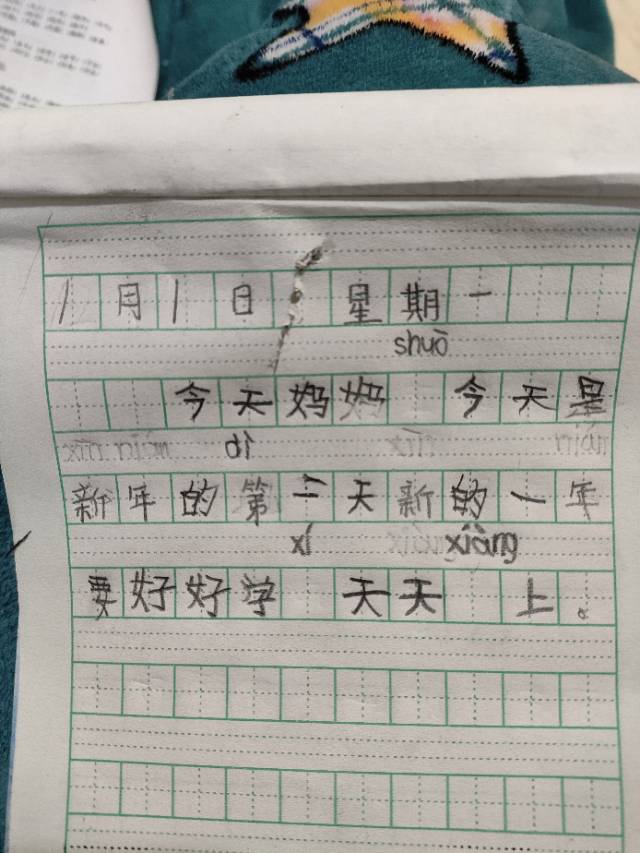 1月1日 星期一
shuō
今天妈妈 今天是
dì
新年的第二天新的一年
xí xiàng
要好好学 天天 上。